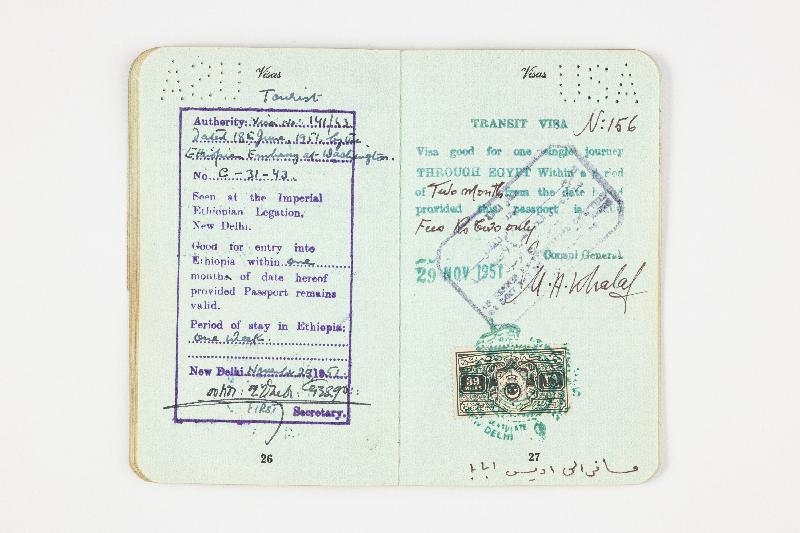 Visas
Tourist
Authority: Visa No: 141/43
Dated 18th June, 1951, by the
Ethiopian Embassy at Washington.
No. C-31-43.
Seen at the Imperial
Ethiopian Legation,
New Delhi.
Good for entry into
Ethiopia within one
months of date hereof
provided Passport remains
valid.
Period of stay in Ethiopia:
one week.
New Delhi. 1951.
FIRST Secretary.
26
USA
Visas
TRANSIT VISA N: 156
Visa good for one single journey
THROUGH EGYPT Within a period
of Two months from the date
provided this passport is
Fees Rs two only
Consul General
29 NOV 1951
M. A. Khalaf
DELHI
27
مسافر الى اديس ابابا